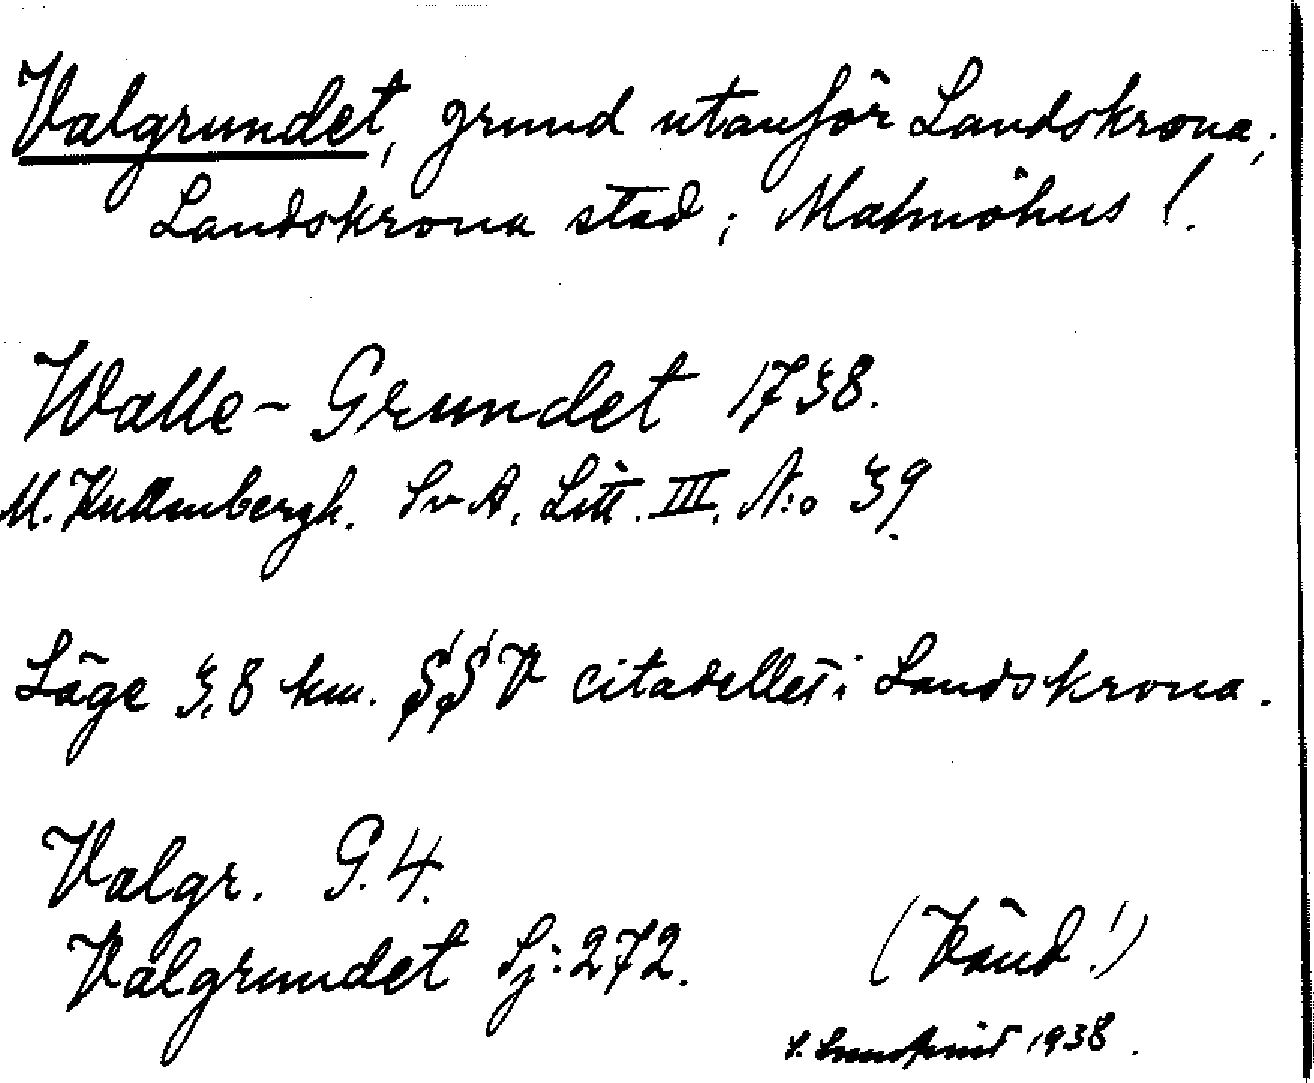 Valgrundet, grund utanför Landskrona;
Landskrona stad; Malmöhus l.
Walle-Grundet 1738.
M. Kullenbergh. Sv A. Litt. III. N:o 39.
Läge 3,8 km. SSV citadellet i Landskrona.
Valgr. G. 4.
Valgrundet Sj: 272.
(Vänd!)
1938.